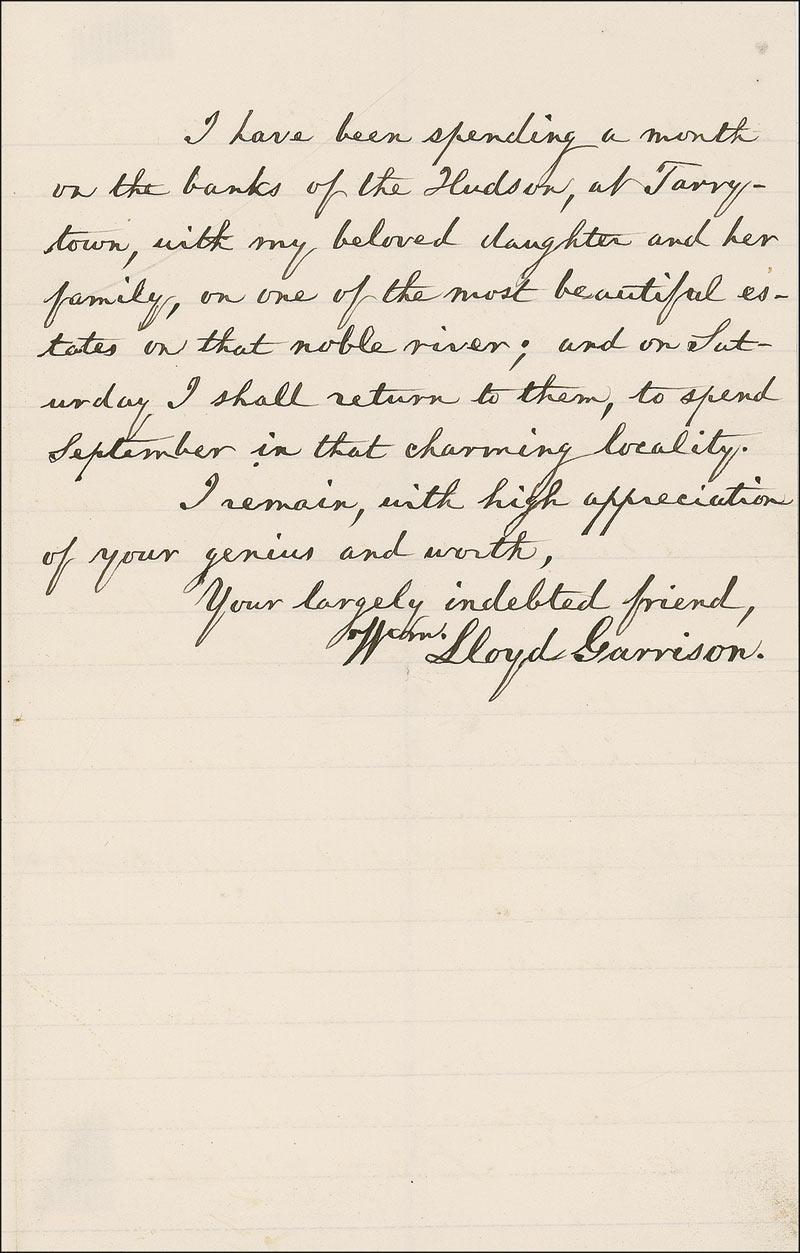 I have been spending a month
on the banks of the Hudson, at Tarry-
town, with my beloved daughter and her
family, on one of the most beautiful es-
tates on that noble river; and on Sat-
urday I shall return to them, to spend
September in that charming locality.
I remain, with high appreciation
of your genius and worth,
Your largely indebted friend,
Wm. Lloyd Garrison.